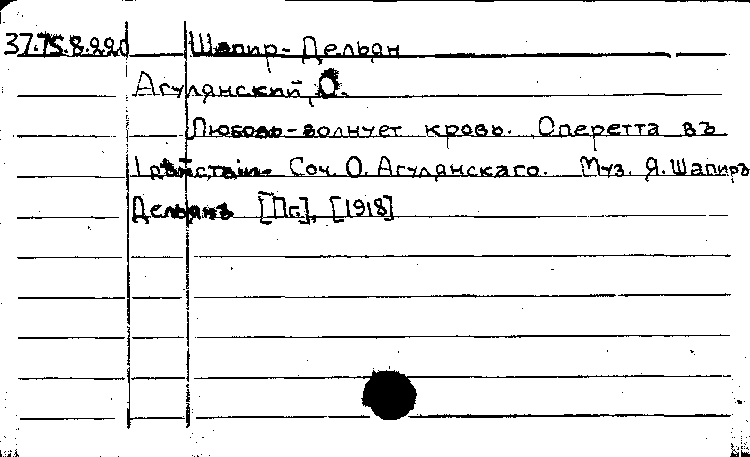 37.75.8.220 Шапир-Дельян
Агулянский, О.
Любовь-волнует кровь. Оперетта въ
1 дѣйствіи. Соч. О. Агулянскаго. Муз. Я. Шапиръ
Дельянъ [Пг.], [1918]